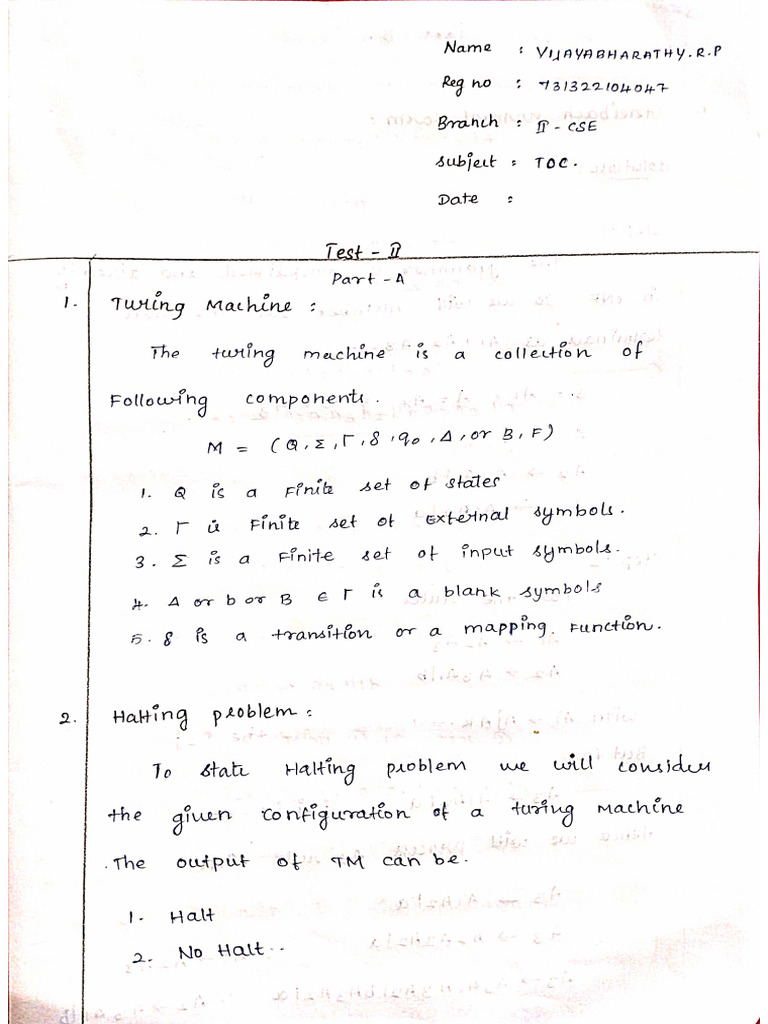 Name : VIJAYABHARATHY.R.P
Reg no : 731322104047
Branch : II - CSE
Subject : TOC.
Date :
Test - II
Part - A
1. Turing Machine :
The turing machine is a collection of
Following components.
M = (Q, Σ, Γ, δ, q0, Δ, or B, F)
1. Q is a Finite set of states
2. Γ is Finite set of External symbols.
3. Σ is a Finite set of input symbols.
4. Δ or b or B ∈ Γ is a blank symbols
5. δ is a transition or a mapping Function.
2. Halting problem :
To state Halting problem we will consider
the given configuration of a turing Machine
.The output of TM can be.
1. Halt
2. No Halt..